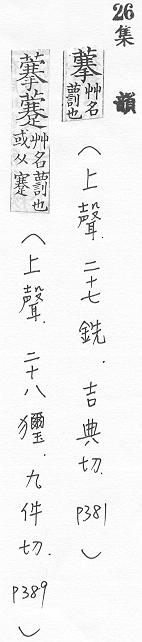 26
集韻
藆艸名
藅也
(上聲.二十七銑.吉典切.P381)
藆艸名藅也
或从蹇
(上聲.二十八獮.九件切.P389)